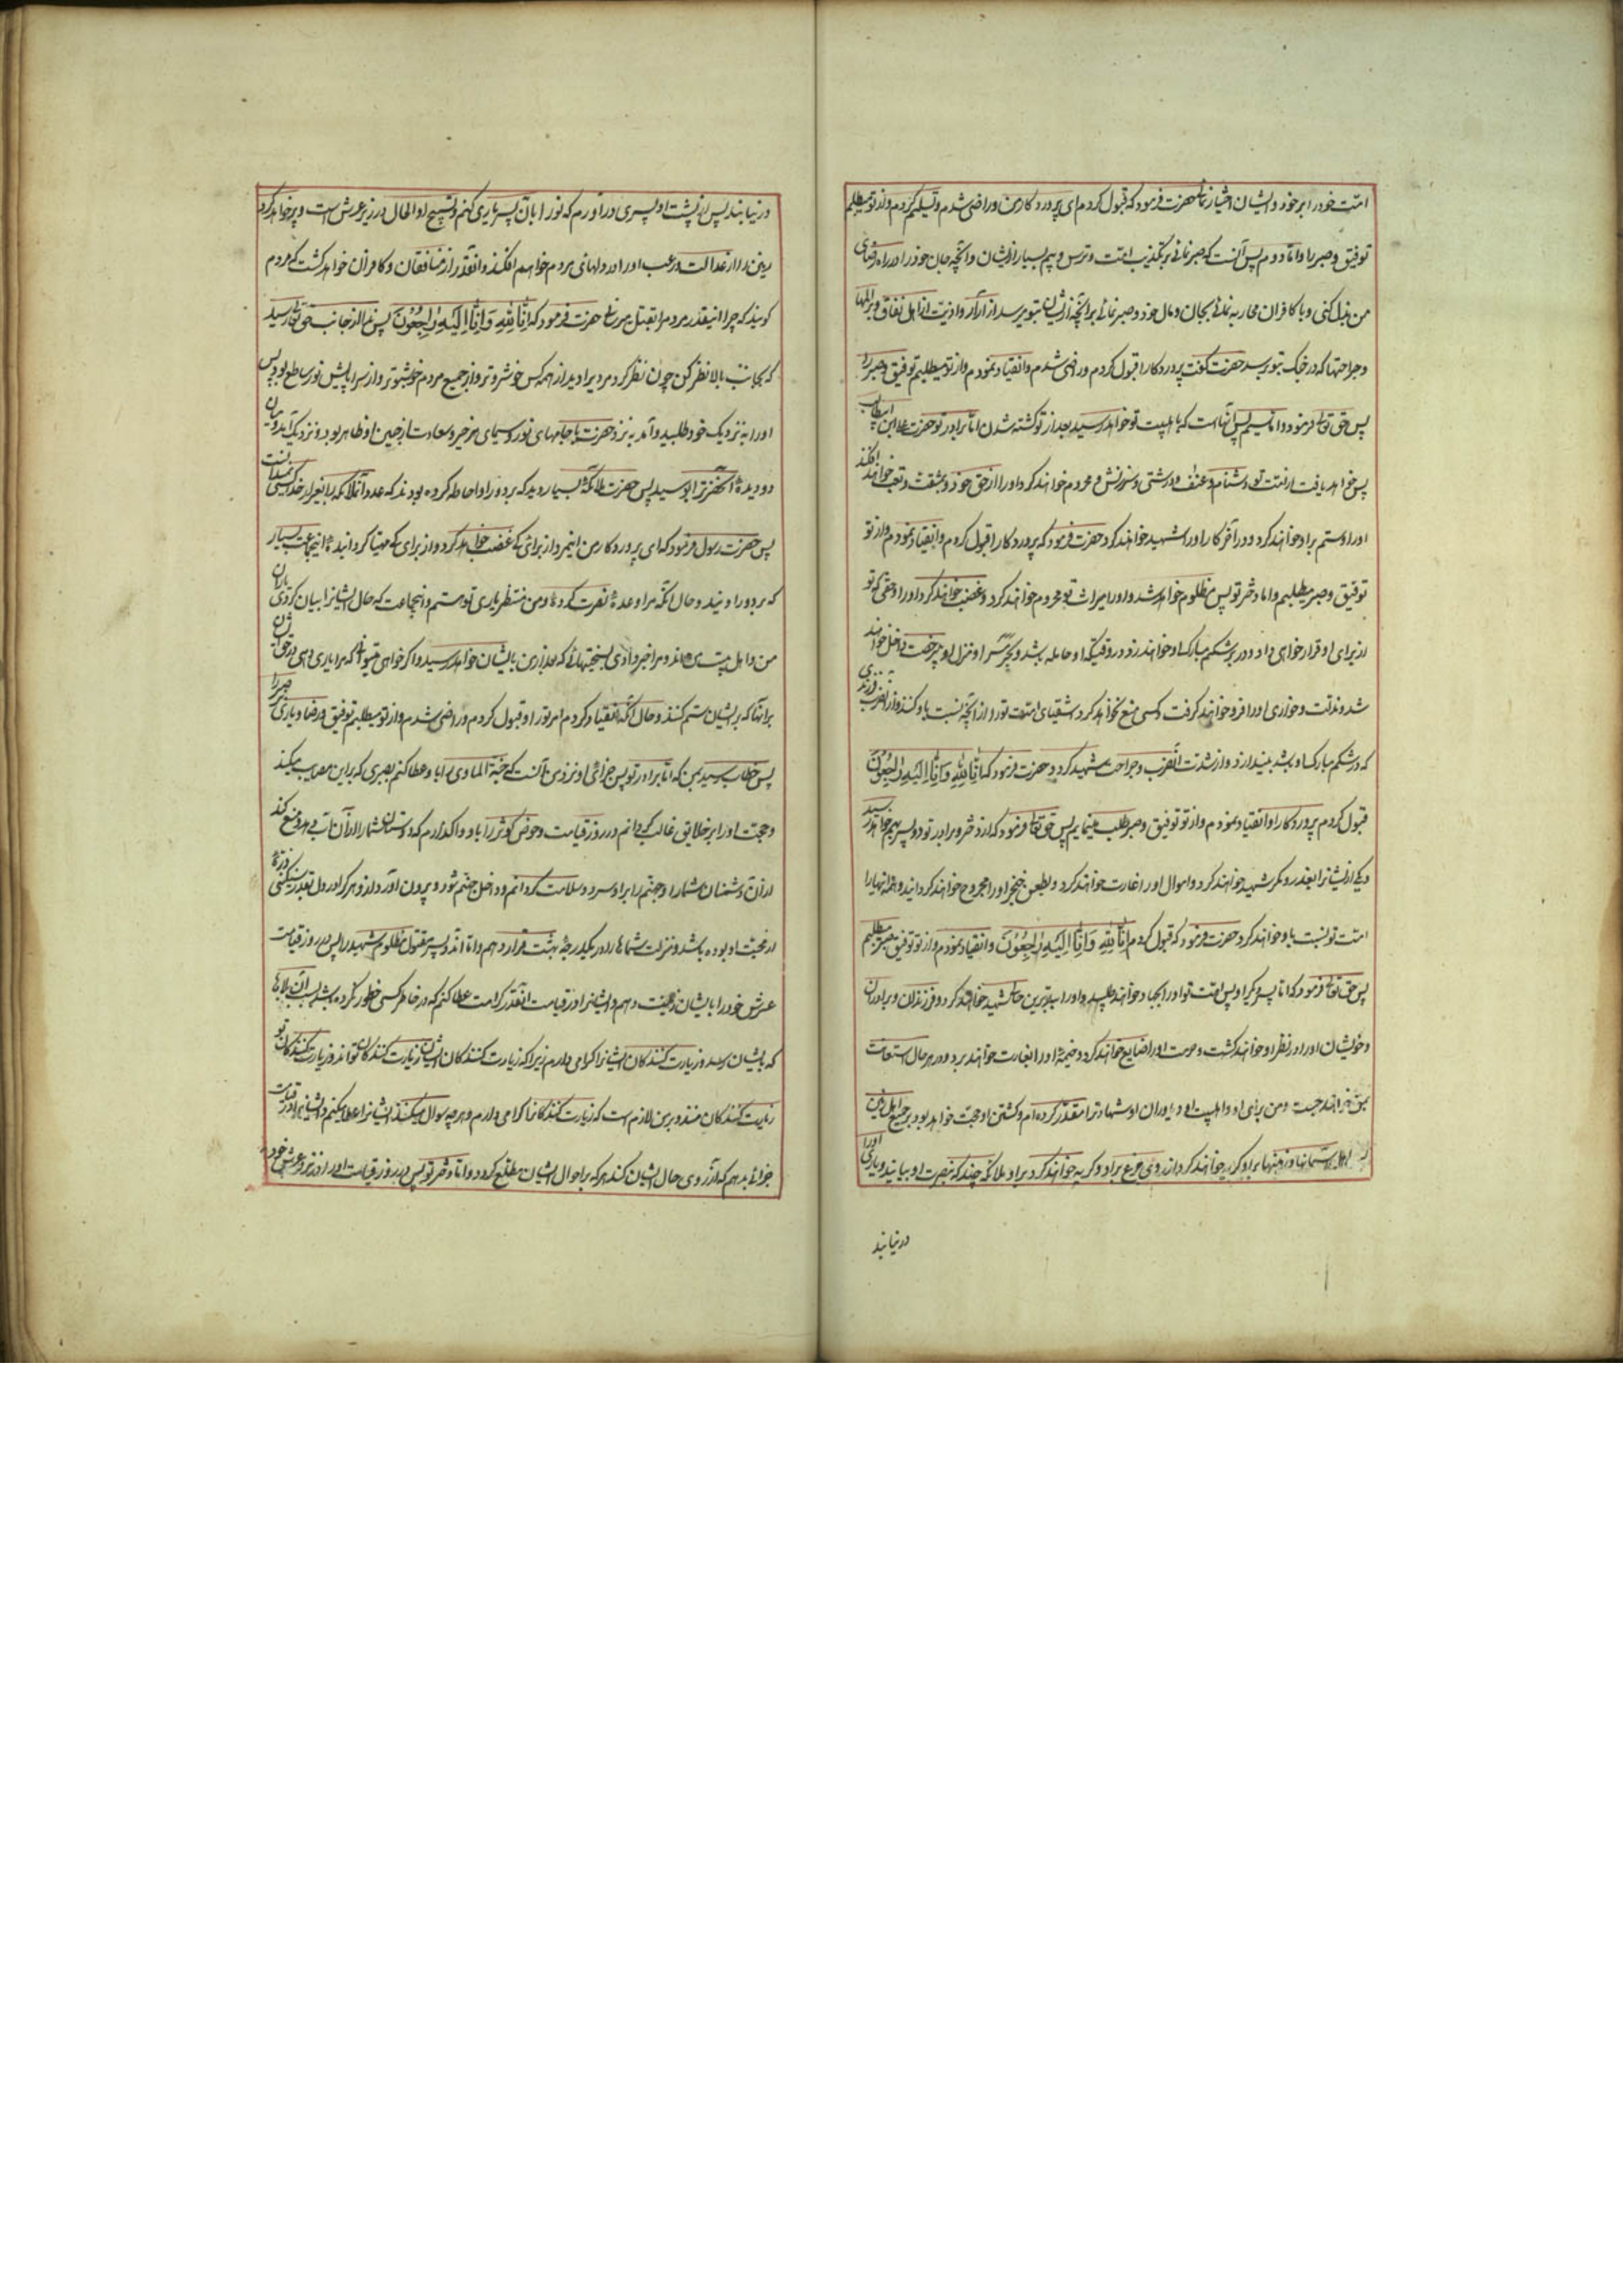 امت خود را بر خود و ایشان اختیار نمائی حضرت فرمود که قبول کردم ای پروردگار من و راضی شدم و تسلیم کردم و از تو میطلبم
توفیق و صبر را و اما دوم پس آنست که صبر نمائی بر تکذیب امت و ترس و بیم بسیار از ایشان و آنچه جان خود را در راه رضای
من بذل کنی و با کافران محاربه نمائی بجان و مال خود و صبر نمائی بر آنچه از ایشان بتو برسد از آزار و اذیت از اهل نفاق و بر المها
و جراحتها که در جنک بتو برسد حضرت گفت پروردگارا قبول کردم و راضی شدم و انقیاد نمودم و از تو میطلبم توفیق و صبر را
پس حق تعالی فرمود و اما سیم پس آنهاست که باهلبیت تو خواهد رسید بعد از تو کشته شدن اما برادر تو حضرت علی ابن ابیطالب
پس خواهد یافت از امت تو دشنام و عنف و درشتی و سرزنش و محروم خواهند کرد او را از حق خود و بمشقت و تعب خواهند افکند
او را و ستم بر او خواهند کرد و در آخر کار او را شهید خواهند کرد حضرت فرمود که پروردگارا قبول کردم و انقیاد نمودم و از تو
توفیق و صبر میطلبم و اما دختر تو پس مظلوم خواهد شد و او را میراث تو محروم خواهند کرد و غصب خواهند کرد او را و حقی که تو
از برای او قرار خواهی داد و در بر شکم مبارک او خواهند زد در وقتیکه او حامله باشد و بحریم او و منزل او بی رخصت داخل خواهند
شد و مذلت و خواری او را فرو خواهد گرفت و کسی منع نخواهد کرد اشقیای امت تو را از آنچه نسبت باو کنند و از آن ضرب فرزندی
که در شکم مبارک او باشد بیندازد و از شدت آن ضرب و جراحت شهید گردد حضرت فرمود که اِنَّا لِلّٰهِ وَ اِنَّا اِلَیْهِ رَاجِعُوْنَ
قبول کردم پروردگارا و انقیاد نمودم و از تو توفیق و صبر طلب مینمایم پس حق تعالی فرمود که از دختر و برادر تو دو پسر بهم خواهد رسید
و یکی از ایشانرا بغدر و مکر شهید خواهند کرد و اموال او را غارت خواهند کرد و بطعن خنجر او را مجروح خواهند گردانید و همه اینها را
امت تو نسبت باو خواهند کرد حضرت فرمود که قبول کردم اِنَّا لِلّٰهِ وَ اِنَّا اِلَیْهِ رَاجِعُوْنَ و انقیاد نمودم و از تو توفیق و صبر میطلبم
پس حق تعالی فرمود که اما پسر دیگر او پس امت تو او را بجهاد خواهند طلبید و او را ببدترین حالی شهید خواهند کرد و فرزندان و برادران
و خویشان او را در نظر او خواهند کشت و حرمت او را ضایع خواهند کرد و خیمهٔ او را بغارت خواهند برد و در هر حال استعانت
بمن خواهد جست و من برای او و اهلبیت او و یاوران او شهادت را مقدر کرده ام و کشتن او حجت خواهد بود بر جمیع اهل زمین
اهل آسمانها و زمینها بر او گریه خواهند کرد از روی جزع بر او و گریه خواهند کرد بر او ملائکه چند که نصرت او بیایند و یاری او را
در نیابند
در نیابند پس از پشت او پسری در آورم که تو را بآن پسر یاری کنم و شبح او الحال در زیر عرش است و پر خواهد کرد
زمین را از عدالت و رعب او را در دلهای مردم خواهم افکند و آنقدر از منافقان و کافران خواهد کشت که مردم
گویند که چرا اینقدر مردم را بقتل میرساند حضرت فرمود که اِنَّا لِلّٰهِ وَ اِنَّا اِلَیْهِ رَاجِعُوْنَ پس ندا از جانب حق تعالی رسید
که بجانب بالا نظر کن چون نظر کرد مردیرا دید از همه کس خوشروتر و از جمیع مردم خوشبوتر و از سراپایش نور ساطع بود پس
او را بنزدیک خود طلبید و آمد بنزد حضرت با جامهای نور و سیمای هر خیر و سعادت از جبین او ظاهر بود و نزدیک آمد و میان
دو دیدهٔ آنحضرت را بوسید پس حضرت ملائکهٔ بسیار دید که بر دور او احاطه کرده بودند که عدد آن ملائکه را بغیر از خدا کسی نمیدانست
پس حضرت رسول فرمود که ای پروردگار من اینمرد از برای که غضب خواهد کرد و از برای که مهیا گردانیدهٔ اینجماعت بسیار
که بر دور اویند و حال آنکه مرا وعدهٔ نصرت کردهٔ و من منتظر یاری تو هستم و اینجماعت که حال ایشانرا بیان کردی یاران
من و اهل بیت من اند و مرا خبر دادی بسختیهائی که بعد از من بایشان خواهد رسید و اگر خواهی میتوانی که مرا یاری دهی در حق ایشان
بر آنها که بر ایشان ستم کنند و حال آنکه انقیاد کردم امر تو را و قبول کردم و راضی شدم و از تو میطلبم توفیق و رضا و یاری بر صبر را
پس خطاب رسید بمن که اما برادر تو پس جزای او نزد من آنست که جنة الماوی را باو عطا کنم بصبری که بر این مصیبت میکند
و حجت او را بر خلایق غالب گردانم در روز قیامت و حوض کوثر را باو واگذارم که دوستان شما را از آن آب دهد و منع کند
از آن دشمنان شما را و جهنم را بر او سرد و سلامت گردانم و داخل جهنم شود و بیرون آورد از او هر که را در دل بقدر سنگینی ذرهٔ
از محبت او بوده باشد و منزلت شما ها را در یکدرجهٔ بهشت قرار دهم و اما آن دو پسر مقتول مظلوم شهید را پس در روز قیامت
عرش خود را بایشان زینت دهم و ایشانرا در قیامت آنقدر کرامت عطا کنم که در خاطر کسی خطور نکرده باشد بسبب آن بلاها
که بایشان رسد و زیارت کنندگان ایشانرا گرامی دارم زیرا که زیارت کنندگان ایشان زیارت کنندگان تو اند و زیارت کنندگان تو
زیارت کنندگان منند و بر من لازم است که زیارت کنندگانرا گرامی دارم و هر چه سوال میکنند ایشانرا عطا میکنم و ایشانرا در قیامت
جزائی بدهم که آرزوی حال ایشان کند هر که بر احوال ایشان مطلع گردد و اما دختر تو پس در روز قیامت او را در نزد عرش خود